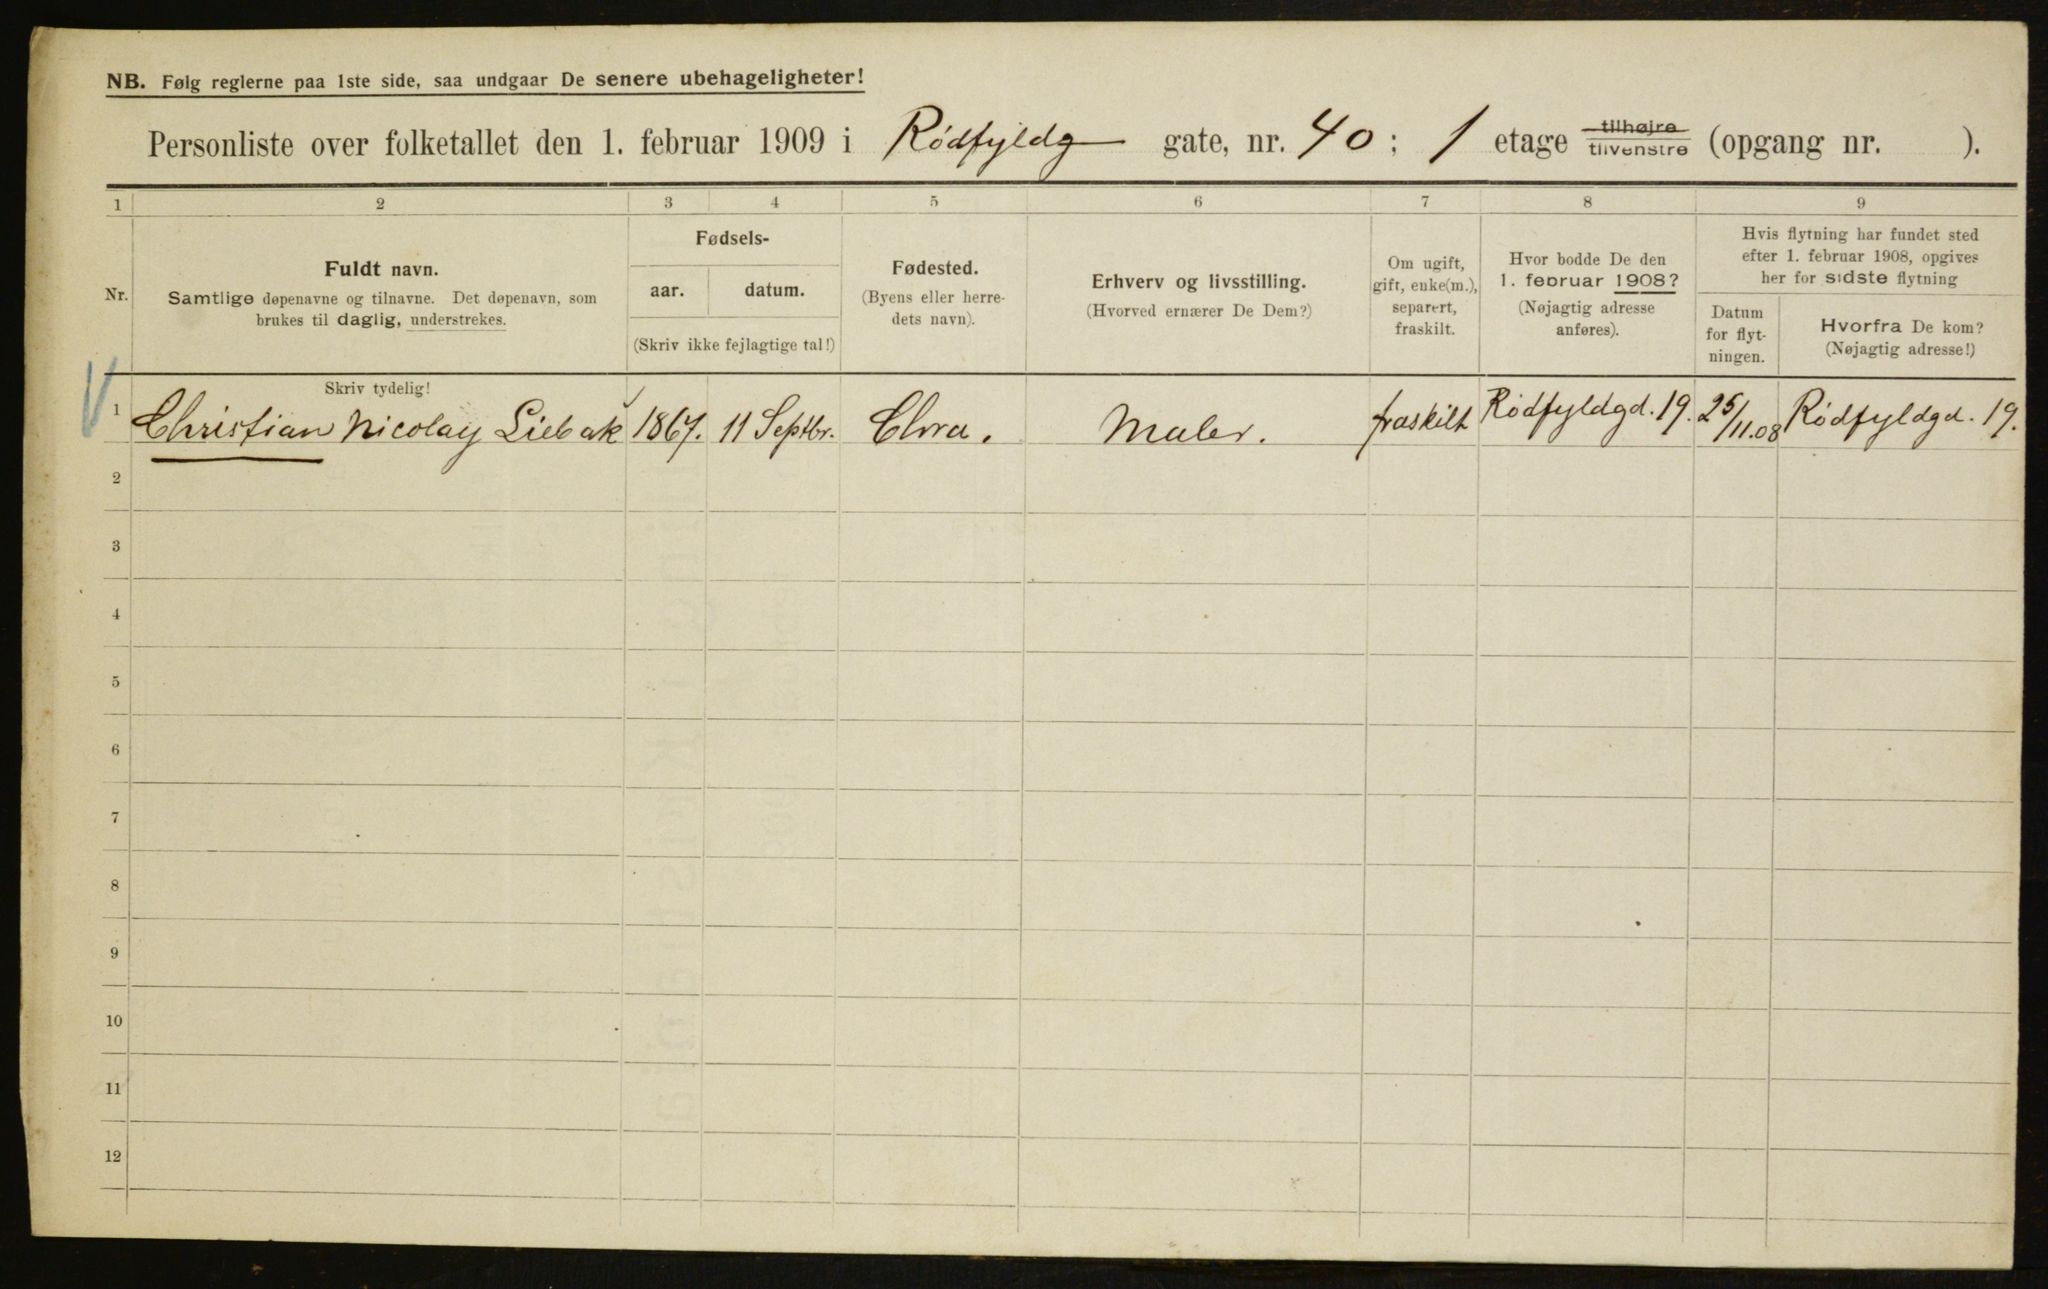 NB. Følg reglerne paa 1ste side, saa undgaar De senere ubehageligheter!
Personliste over folketallet den 1. februar 1909 i Rødfyldg gate, nr. 40; 1 etage tilhøjre tilvenstre (opgang nr. ).
1 2 3 4 5 6 7 8 9
Nr.
Fuldt navn.
Samtlige døpenavne og tilnavne. Det døpenavn, som
brukes til daglig, understrekes.
Fødsels-
aar. datum.
(Skriv ikke fejlagtige tal!)
Fødested.
(Byens eller herre-
dets navn).
Erhverv og livsstilling.
(Hvorved ernærer De Dem?)
Om ugift,
gift, enke(m.),
separert,
fraskilt.
Hvor bodde De den
1. februar 1908?
(Nøjagtig adresse
anføres).
Hvis flytning har fundet sted
efter 1. februar 1908, opgives
her for sidste flytning
Datum
for flyt-
ningen.
Hvorfra De kom?
(Nøjagtig adresse!)
Skriv tydelig!
1 Christian Nicolay Liebak 1867. 11 Septbr. Chra. Maler. fraskilt Rødfyldgd. 19. 25/11.08 Rødfyldgd. 19.
2
3
4
5
6
7
8
9
10
11
12